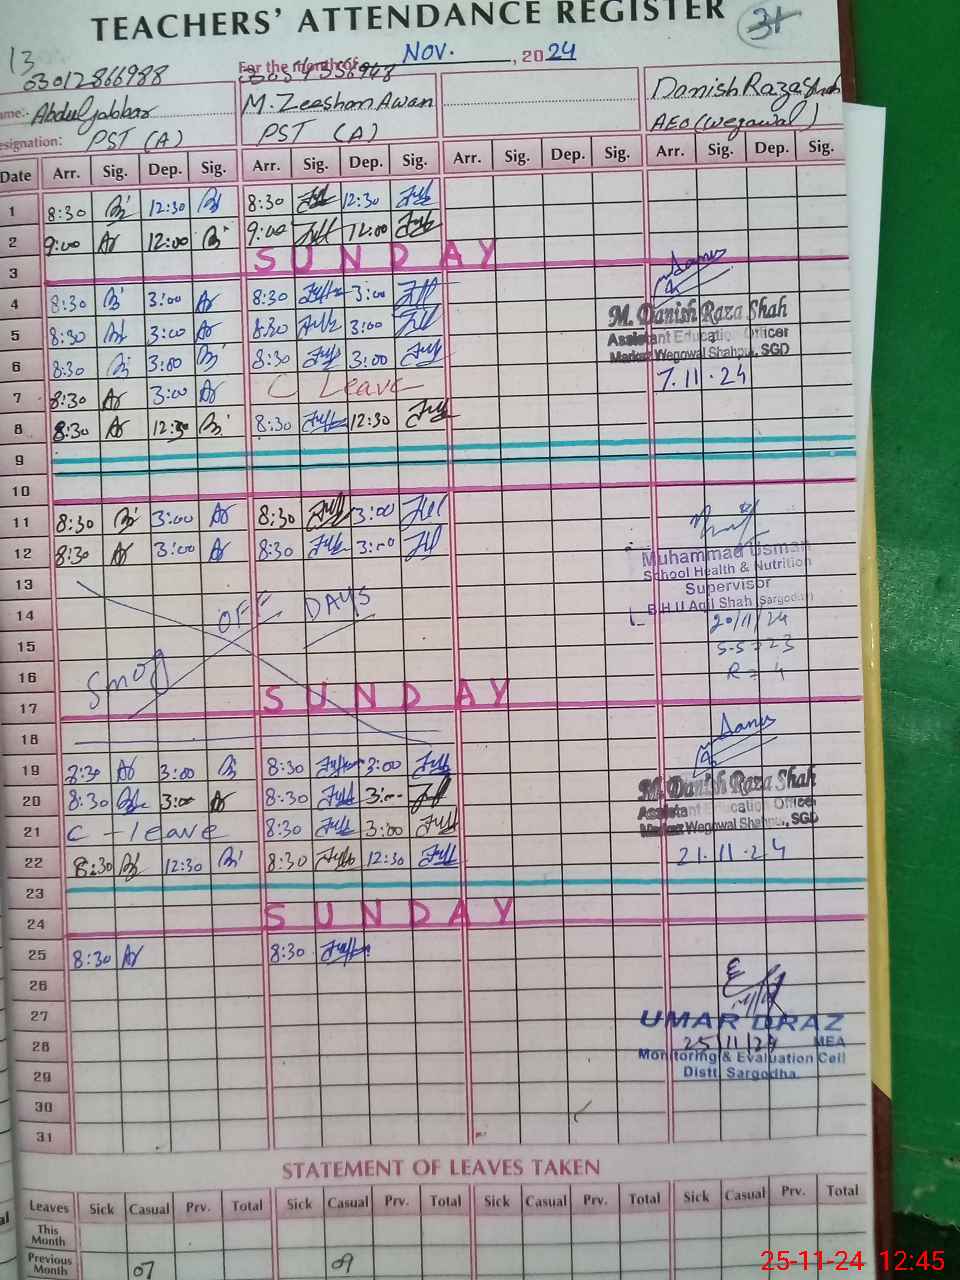 TEACHERS' ATTENDANCE REGISTER
31
13
For the month of Nov. , 2024
03012866988
Name:- Abdul Jabbar M. Zeeshan Awan Danish Raza Shah
Designation: PST (A) PST (A) AEO (Wegowal)
Date Arr. Sig. Dep. Sig. Arr. Sig. Dep. Sig. Arr. Sig. Dep. Sig. Arr. Sig. Dep. Sig.
1 8:30 12:30 8:30 12:30
2 9:00 12:00 9:00 12:00
SUNDAY
3
4 8:30 3:00 8:30 3:00
M. Danish Raza Shah
5 8:30 3:00 8:30 3:00
Assistant Education Officer
6 8:30 3:00 8:30 3:00
Markaz Wegowal Shahpur, SGD
7 8:30 3:00 C Leave 7.11.24
8 8:30 12:30 8:30 12:30
9
10
11 8:30 3:00 8:30 3:00
12 8:30 3:00 8:30 3:00
Muhammad Usman
School Health & Nutrition
Supervisor
B.H.U Aqil Shah (Sargodha)
13
14 OFF DAYS
20/11/24
15
S.S = 23
16 Smog
R = 4
SUNDAY
17
18
19 8:30 3:00 8:30 3:00
20 8:30 3:00 8:30 3:00
M. Danish Raza Shah
Assistant Education Officer
21 C - leave 8:30 3:00
Markaz Wegowal Shahpur, SGD
22 8:30 12:30 8:30 12:30 21.11.24
23
SUNDAY
24
25 8:30 8:30
26
27
UMAR DRAZ
28 25/11/24 MEA
Monitoring & Evaluation Cell
29 Distt. Sargodha.
30
31
STATEMENT OF LEAVES TAKEN
Leaves Sick Casual Prv. Total Sick Casual Prv. Total Sick Casual Prv. Total Sick Casual Prv. Total
This Month
Previous Month 07 09
25-11-24 12:45